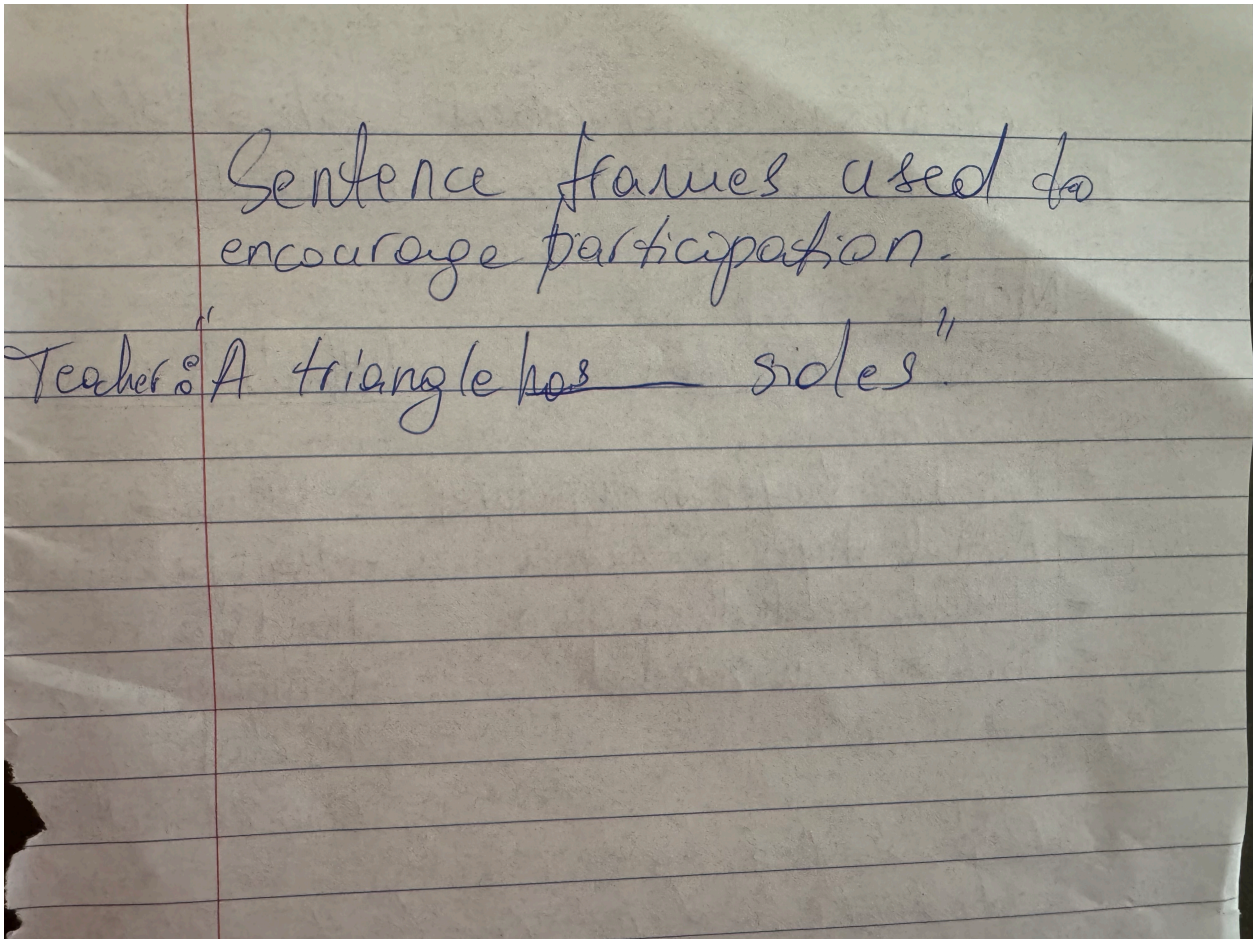 Sentence frames used to
encourage participation.
Teacher: "A triangle has ____ sides".